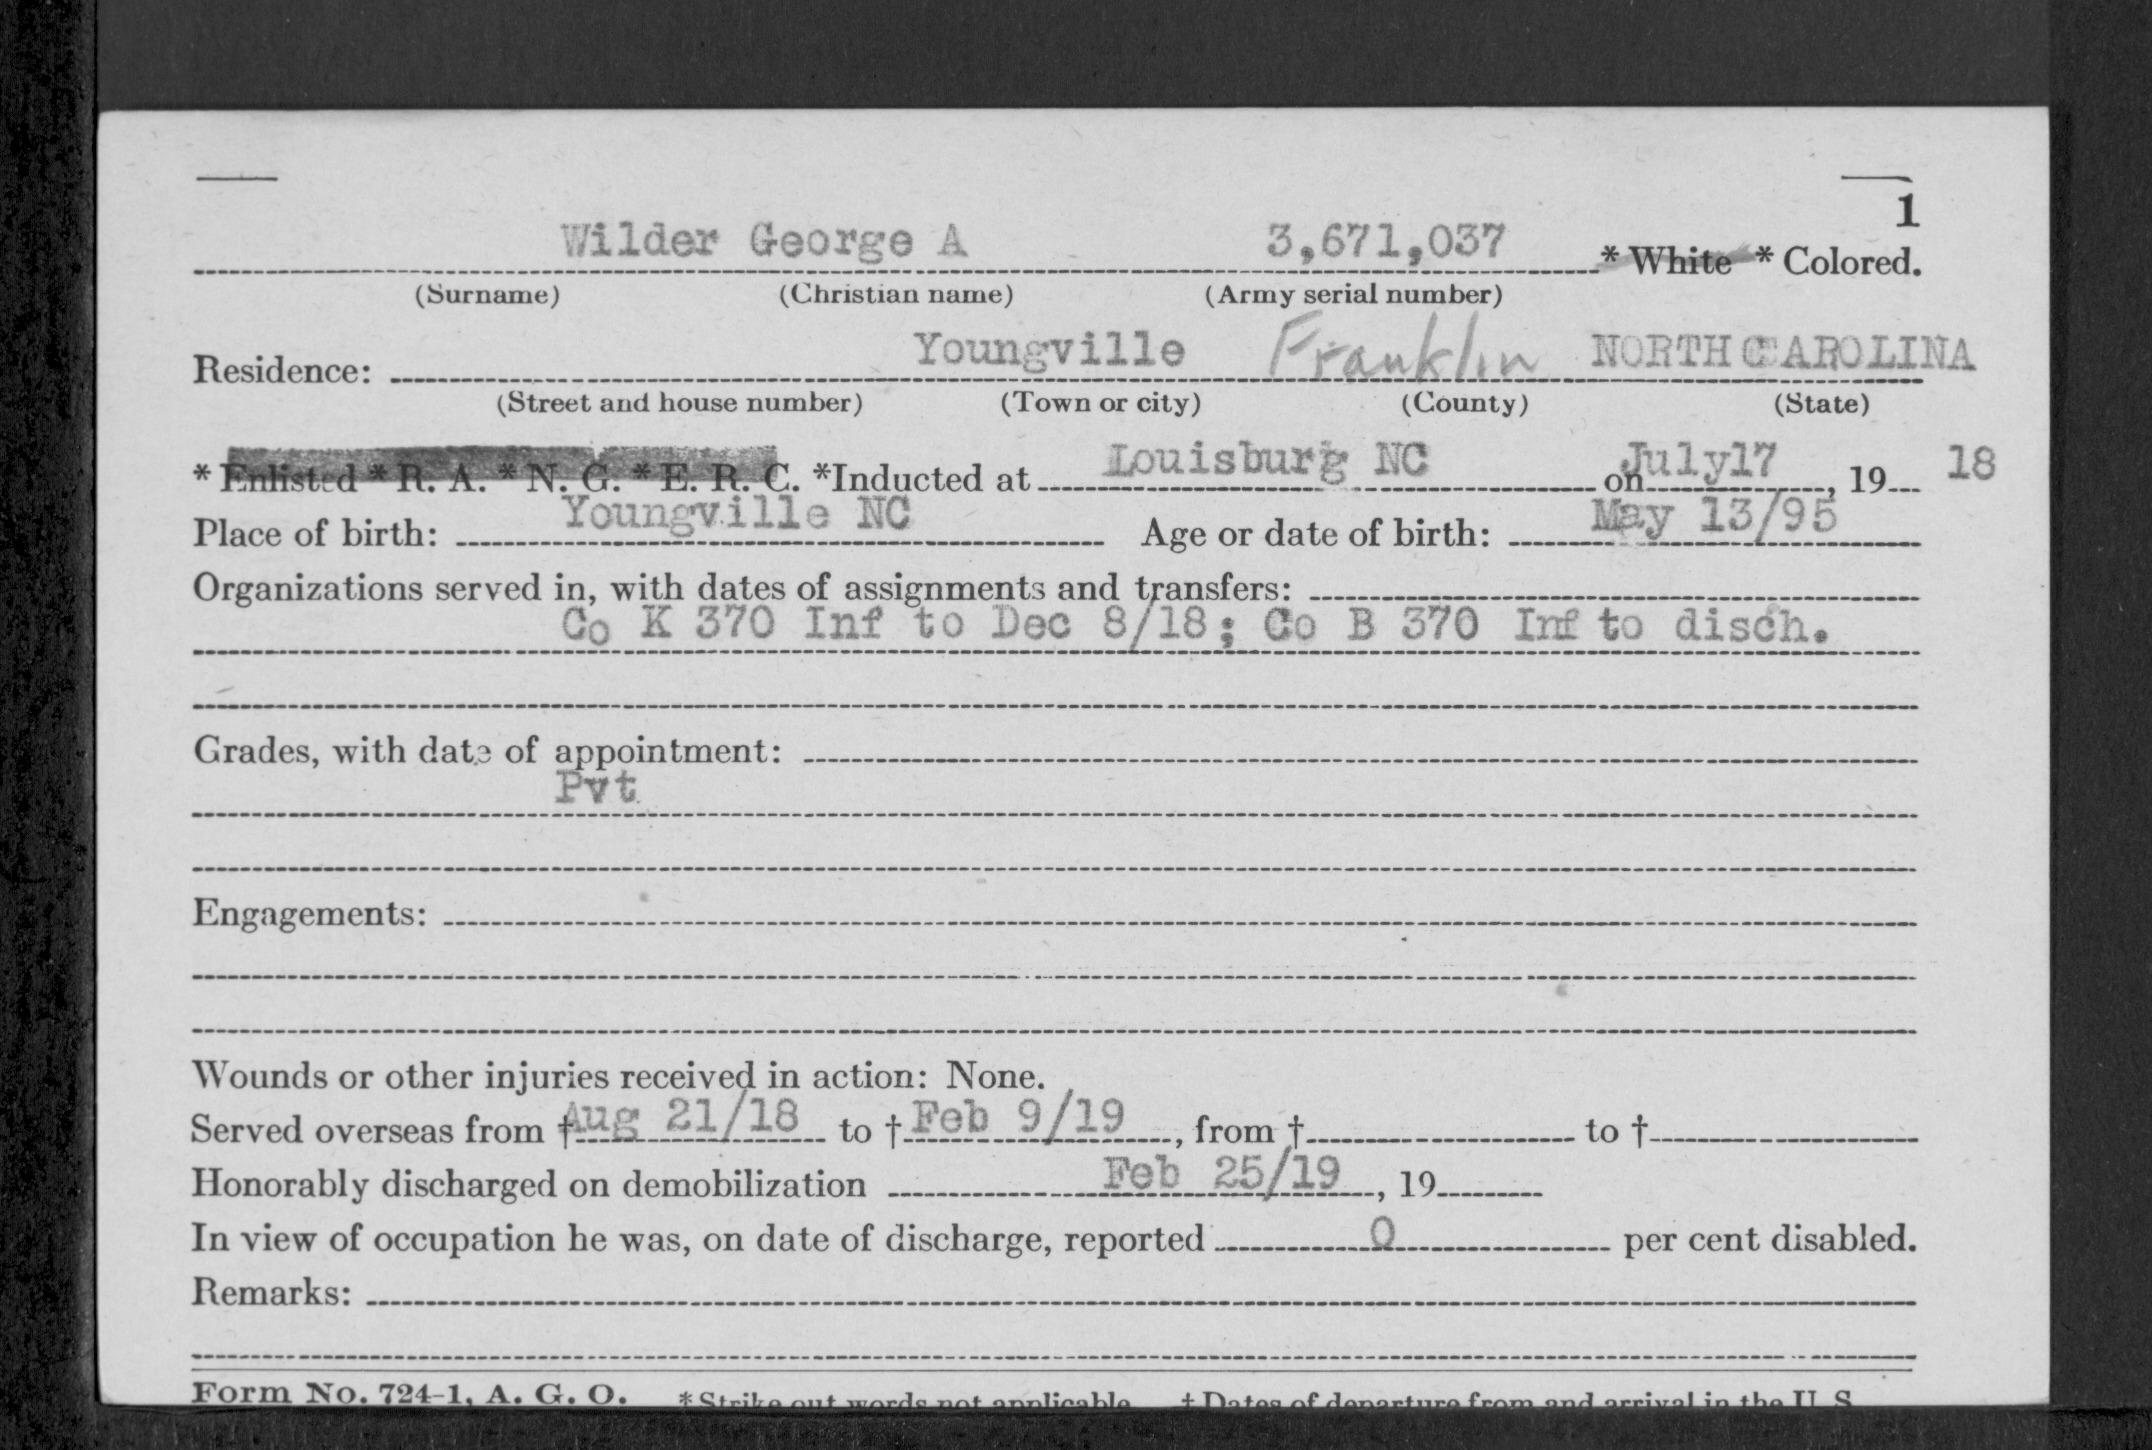 1
Wilder George A 3,671,037 * White * Colored.
(Surname) (Christian name) (Army serial number)
Residence: Youngville Franklin NORTH CAROLINA
(Street and house number) (Town or city) (County) (State)
* Enlisted * R. A. * N. G. * E. R. C. *Inducted at Louisburg NC on July17, 19 18
Place of birth: Youngville NC Age or date of birth: May 13/95
Organizations served in, with dates of assignments and transfers:
Co K 370 Inf to Dec 8/18; Co B 370 Inf to disch.
Grades, with date of appointment:
Pvt
Engagements:
Wounds or other injuries received in action: None.
Served overseas from † Aug 21/18 to † Feb 9/19, from † to †
Honorably discharged on demobilization Feb 25/19, 19
In view of occupation he was, on date of discharge, reported 0 per cent disabled.
Remarks:
Form No. 724-1, A. G. O. *Strike out words not applicable † Dates of departure from and arrival in the U S